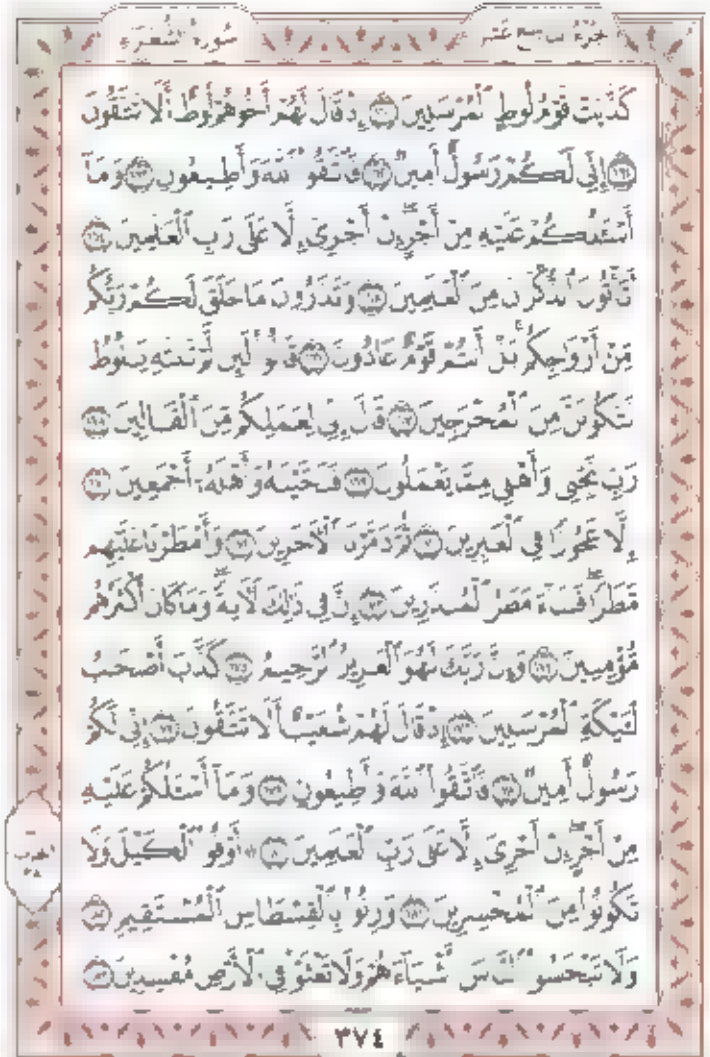 سُورَةُ الشُّعَرَاءِ الجُزْءُ التَّاسِعَ عَشَرَ
كَذَّبَتْ قَوْمُ لُوطٍ ٱلْمُرْسَلِينَ ١٦٠ إِذْ قَالَ لَهُمْ أَخُوهُمْ لُوطٌ أَلَا تَتَّقُونَ
١٦١ إِنِّي لَكُمْ رَسُولٌ أَمِينٌ ١٦٢ فَٱتَّقُوا۟ ٱللَّهَ وَأَطِيعُونِ ١٦٣ وَمَآ
أَسْـَٔلُكُمْ عَلَيْهِ مِنْ أَجْرٍ إِنْ أَجْرِيَ إِلَّا عَلَىٰ رَبِّ ٱلْعَـٰلَمِينَ ١٦٤
أَتَأْتُونَ ٱلذُّكْرَانَ مِنَ ٱلْعَـٰلَمِينَ ١٦٥ وَتَذَرُونَ مَا خَلَقَ لَكُمْ رَبُّكُم
مِّنْ أَزْوَٰجِكُم بَلْ أَنتُمْ قَوْمٌ عَادُونَ ١٦٦ قَالُوا۟ لَئِن لَّمْ تَنتَهِ يَـٰلُوطُ
لَتَكُونَنَّ مِنَ ٱلْمُخْرَجِينَ ١٦٧ قَالَ إِنِّي لِعَمَلِكُم مِّنَ ٱلْقَالِينَ ١٦٨
رَبِّ نَجِّنِي وَأَهْلِي مِمَّا يَعْمَلُونَ ١٦٩ فَنَجَّيْنَـٰهُ وَأَهْلَهُۥٓ أَجْمَعِينَ ١٧٠
إِلَّا عَجُوزًا فِي ٱلْغَـٰبِرِينَ ١٧١ ثُمَّ دَمَّرْنَا ٱلْـَٔاخَرِينَ ١٧٢ وَأَمْطَرْنَا عَلَيْهِم
مَّطَرًا فَسَآءَ مَطَرُ ٱلْمُنذَرِينَ ١٧٣ إِنَّ فِي ذَٰلِكَ لَـَٔايَةً وَمَا كَانَ أَكْثَرُهُم
مُّؤْمِنِينَ ١٧٤ وَإِنَّ رَبَّكَ لَهُوَ ٱلْعَزِيزُ ٱلرَّحِيمُ ١٧٥ كَذَّبَ أَصْحَـٰبُ
لْـَٔيْكَةِ ٱلْمُرْسَلِينَ ١٧٦ إِذْ قَالَ لَهُمْ شُعَيْبٌ أَلَا تَتَّقُونَ ١٧٧ إِنِّي لَكُمْ
رَسُولٌ أَمِينٌ ١٧٨ فَٱتَّقُوا۟ ٱللَّهَ وَأَطِيعُونِ ١٧٩ وَمَآ أَسْـَٔلُكُمْ عَلَيْهِ
مِنْ أَجْرٍ إِنْ أَجْرِيَ إِلَّا عَلَىٰ رَبِّ ٱلْعَـٰلَمِينَ ١٨٠ ۞ أَوْفُوا۟ ٱلْكَيْلَ وَلَا
تَكُونُوا۟ مِنَ ٱلْمُخْسِرِينَ ١٨١ وَزِنُوا۟ بِٱلْقِسْطَاسِ ٱلْمُسْتَقِيمِ ١٨٢
وَلَا تَبْخَسُوا۟ ٱلنَّاسَ أَشْيَآءَهُمْ وَلَا تَعْثَوْا۟ فِي ٱلْأَرْضِ مُفْسِدِينَ ١٨٣
الحزب
٣٨
٣٧٤